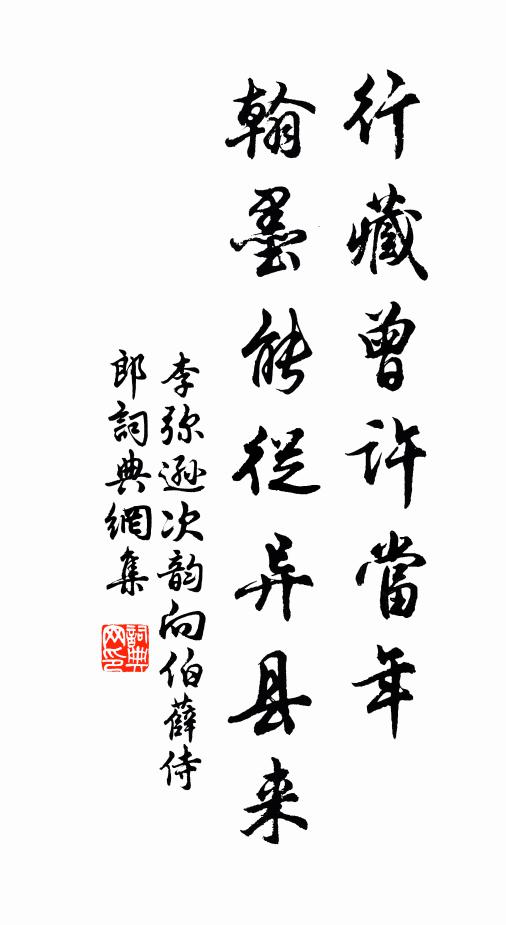 行藏曾许當年
翰墨能從异县来
李弥逊次韵向伯薛侍
郎詞典網集
詞典
网印